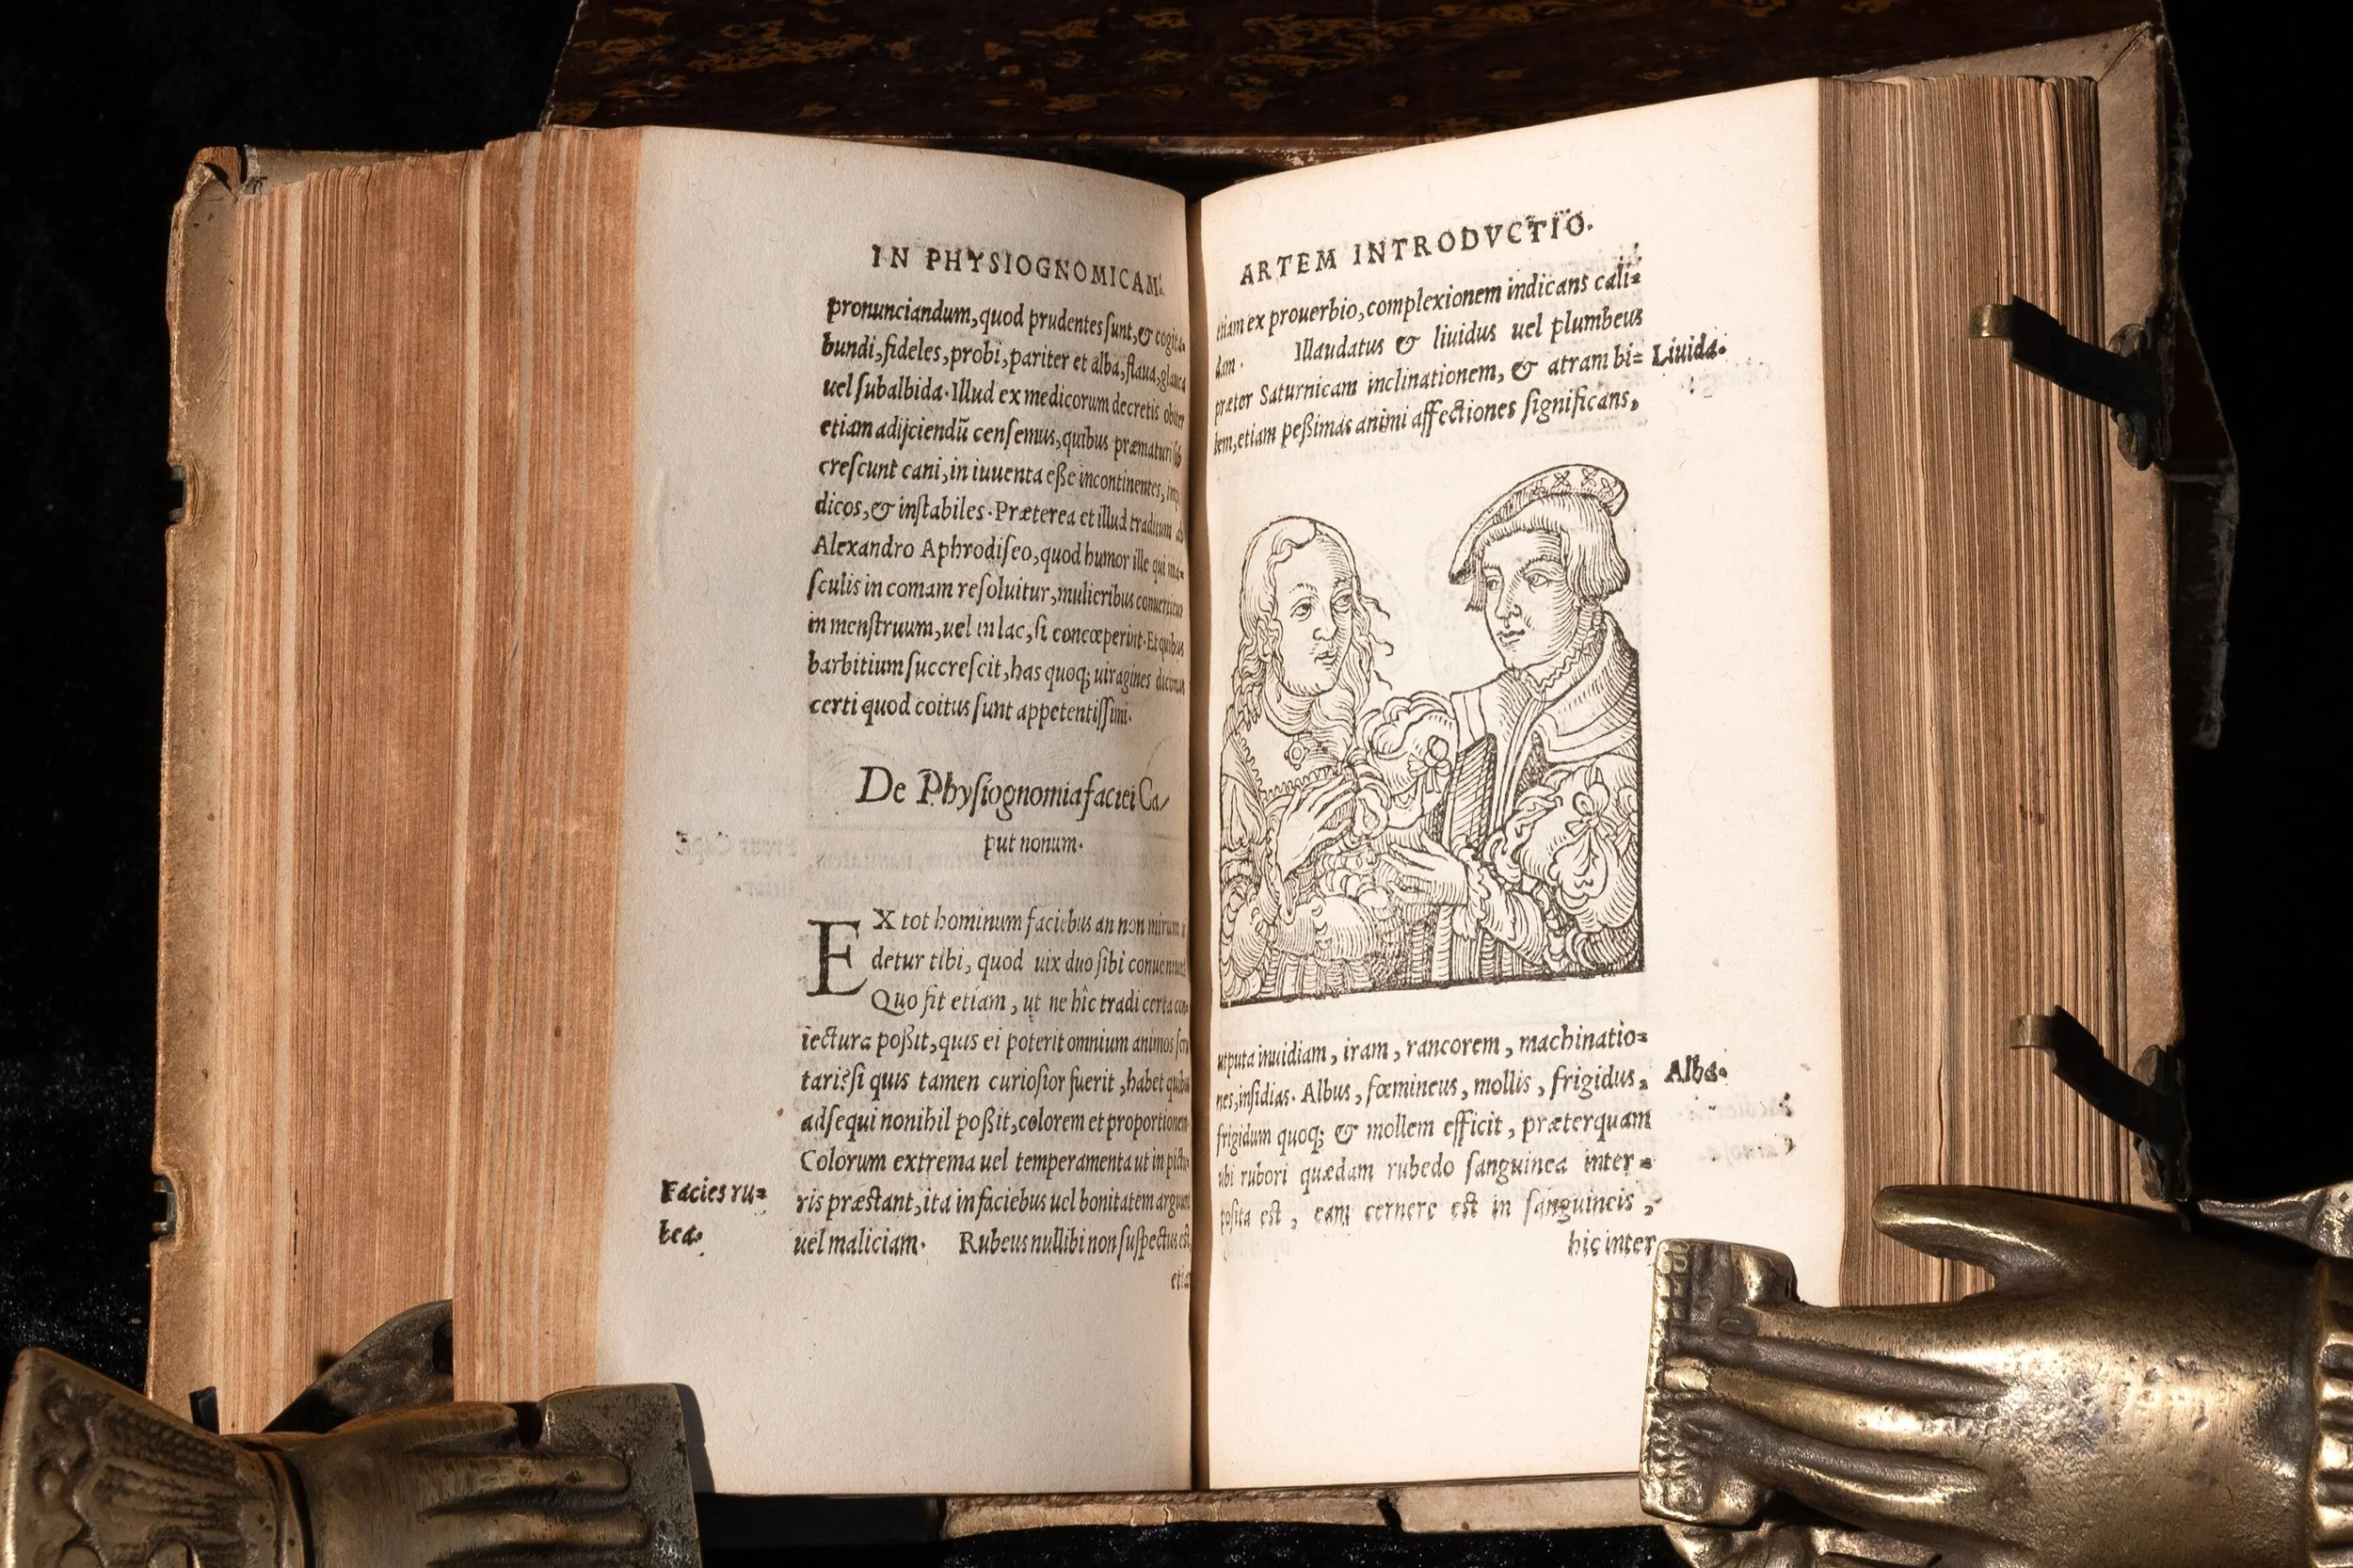 IN PHYSIOGNOMICAM
pronunciandum, quod prudentes ſunt, & cogita-
bundi, fideles, probi, pariter et alba, flaua, glauca
uel ſubalbida. Illud ex medicorum decretis obiter
etiam adijciendū cenſemus, quibus præmaturi ſub
creſcunt cani, in iuuenta eſſe incontinentes,
dicos, & inſtabiles. Præterea et illud traditum ab
Alexandro Aphrodiſeo, quod humor ille qui ma-
ſculis in comam reſoluitur, mulieribus conuertitur
in menſtruum, uel in lac, ſi concœperint. Et quibus
barbitium ſuccreſcit, has quoq; uiragines dicimus
certi quod coitus ſunt appetentiſſimi.
De Phyſiognomia faciei Ca/
put nonum.
EX tot hominum faciebus an non mirum
detur tibi, quod uix duo ſibi conueniunt
Quo fit etiam, ut ne hîc tradi certa con-
iectura poßit, quis ei poterit omnium animos
tari? ſi quis tamen curioſior fuerit, habet quibus
adſequi nonihil poßit, colorem et proportionem.
Colorum extrema uel temperamenta ut in pictu-
Facies ru= ris præſtant, ita in faciebus uel bonitatem arguunt
bea. uel maliciam. Rubeus nullibi non ſuſpectus eſt,
etia
ARTEM INTRODVCTIO.
etiam ex prouerbio, complexionem indicans cali=
dam. Illaudatus & liuidus uel plumbeus
præter Saturnicam inclinationem, & atram bi= Liuida.
lem, etiam peßimas animi affectiones ſignificans,
utputa inuidiam, iram, rancorem, machinatio=
nes, inſidias. Albus, fœmineus, mollis, frigidus, Alba.
frigidum quoq; & mollem efficit, præterquam
ubi rubori quædam rubedo ſanguinea inter=
poſita eſt, eam cernere eſt in ſanguineis,
hic inter